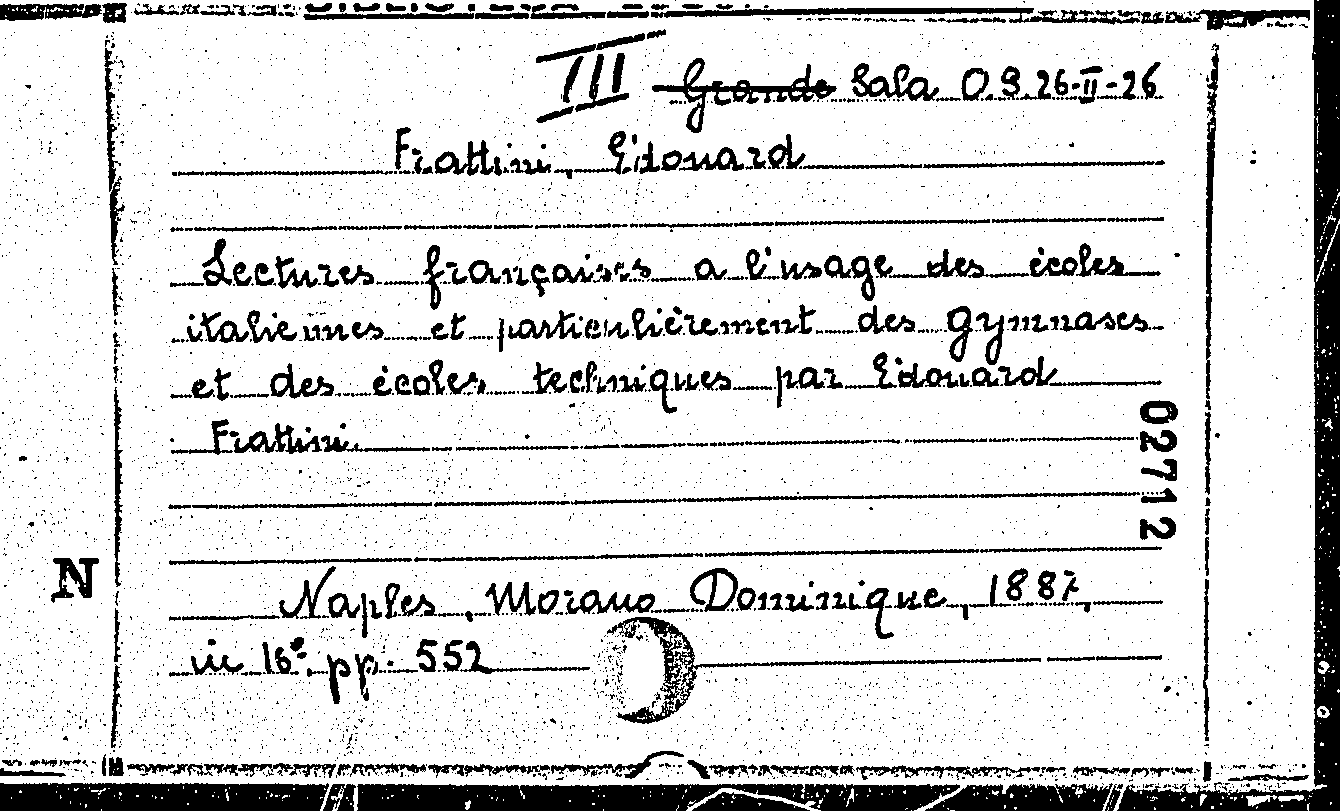 III ~~Grande~~ Sala O.9.26-II-26
Frattini, Edouard
Lectures françaises a l'usage des écoles
italiennes et particulièrement des gymnases
et des écoles techniques par Edouard
Frattini.
02712
N
Naples, Morano Dominique, 1887,
in 16°. pp. 552